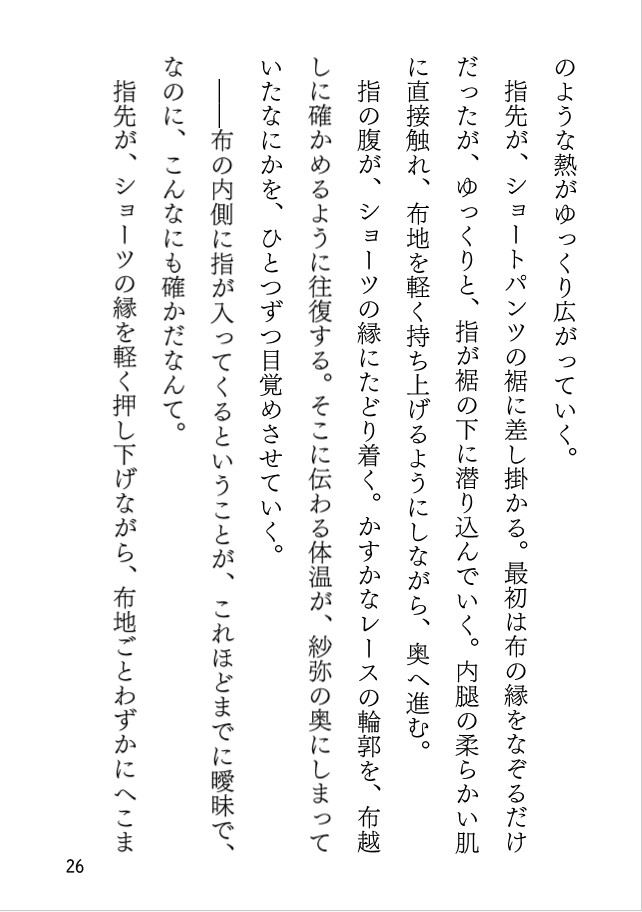 のような熱がゆっくり広がっていく。
指先が、ショートパンツの裾に差し掛かる。最初は布の縁をなぞるだけ
だったが、ゆっくりと、指が裾の下に潜り込んでいく。内腿の柔らかい肌
に直接触れ、布地を軽く持ち上げるようにしながら、奥へ進む。
指の腹が、ショーツの縁にたどり着く。かすかなレースの輪郭を、布越
しに確かめるように往復する。そこに伝わる体温が、紗弥の奥にしまって
いたなにかを、ひとつずつ目覚めさせていく。
――布の内側に指が入ってくるということが、これほどまでに曖昧で、
なのに、こんなにも確かだなんて。
指先が、ショーツの縁を軽く押し下げながら、布地ごとわずかにへこま
26